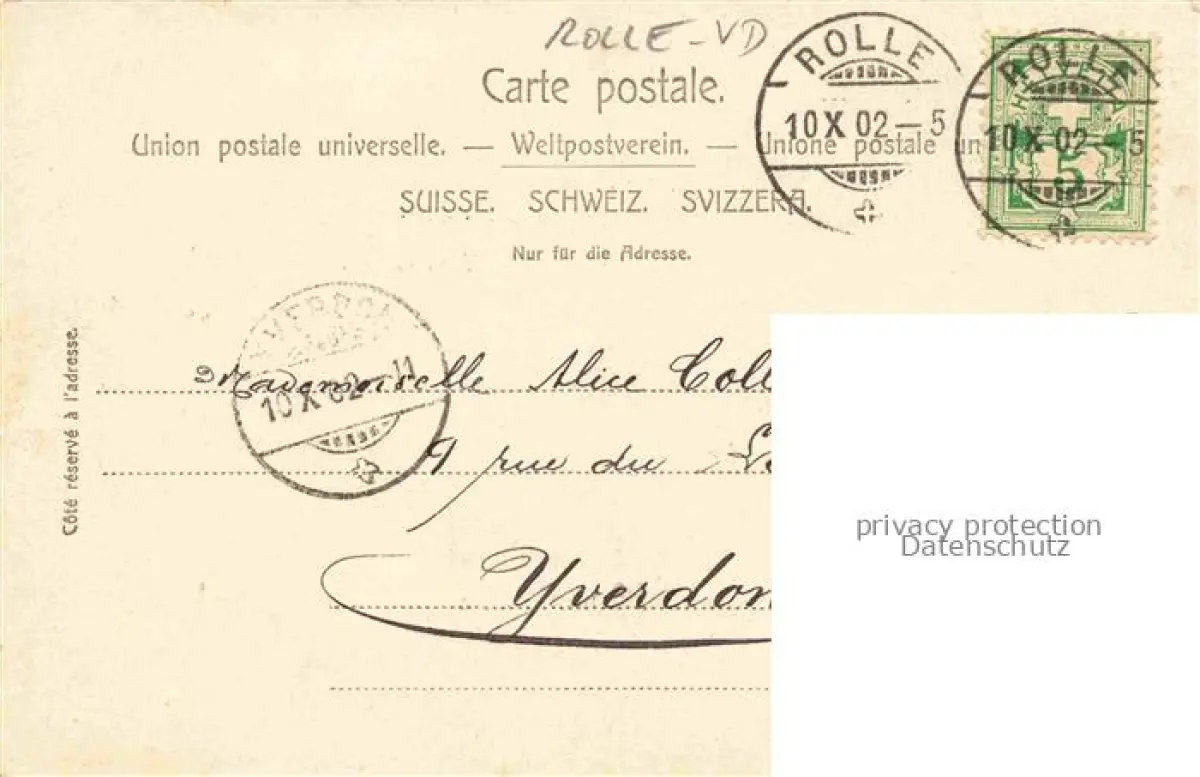 ROLLE-VD
Carte postale.
Union postale universelle. — Weltpostverein. — Unione postale un
SUISSE. SCHWEIZ. SVIZZERA.
Nur für die Adresse.
ROLLE
10 X 02 — 5
ROLLE
10 X 02 — 5
HELVETIA
5
Côté réservé à l'adresse.
YVERDON
10 X 02 — 11
Mademoiselle Alice Coll
9 rue du
Yverdon
privacy protection
Datenschutz